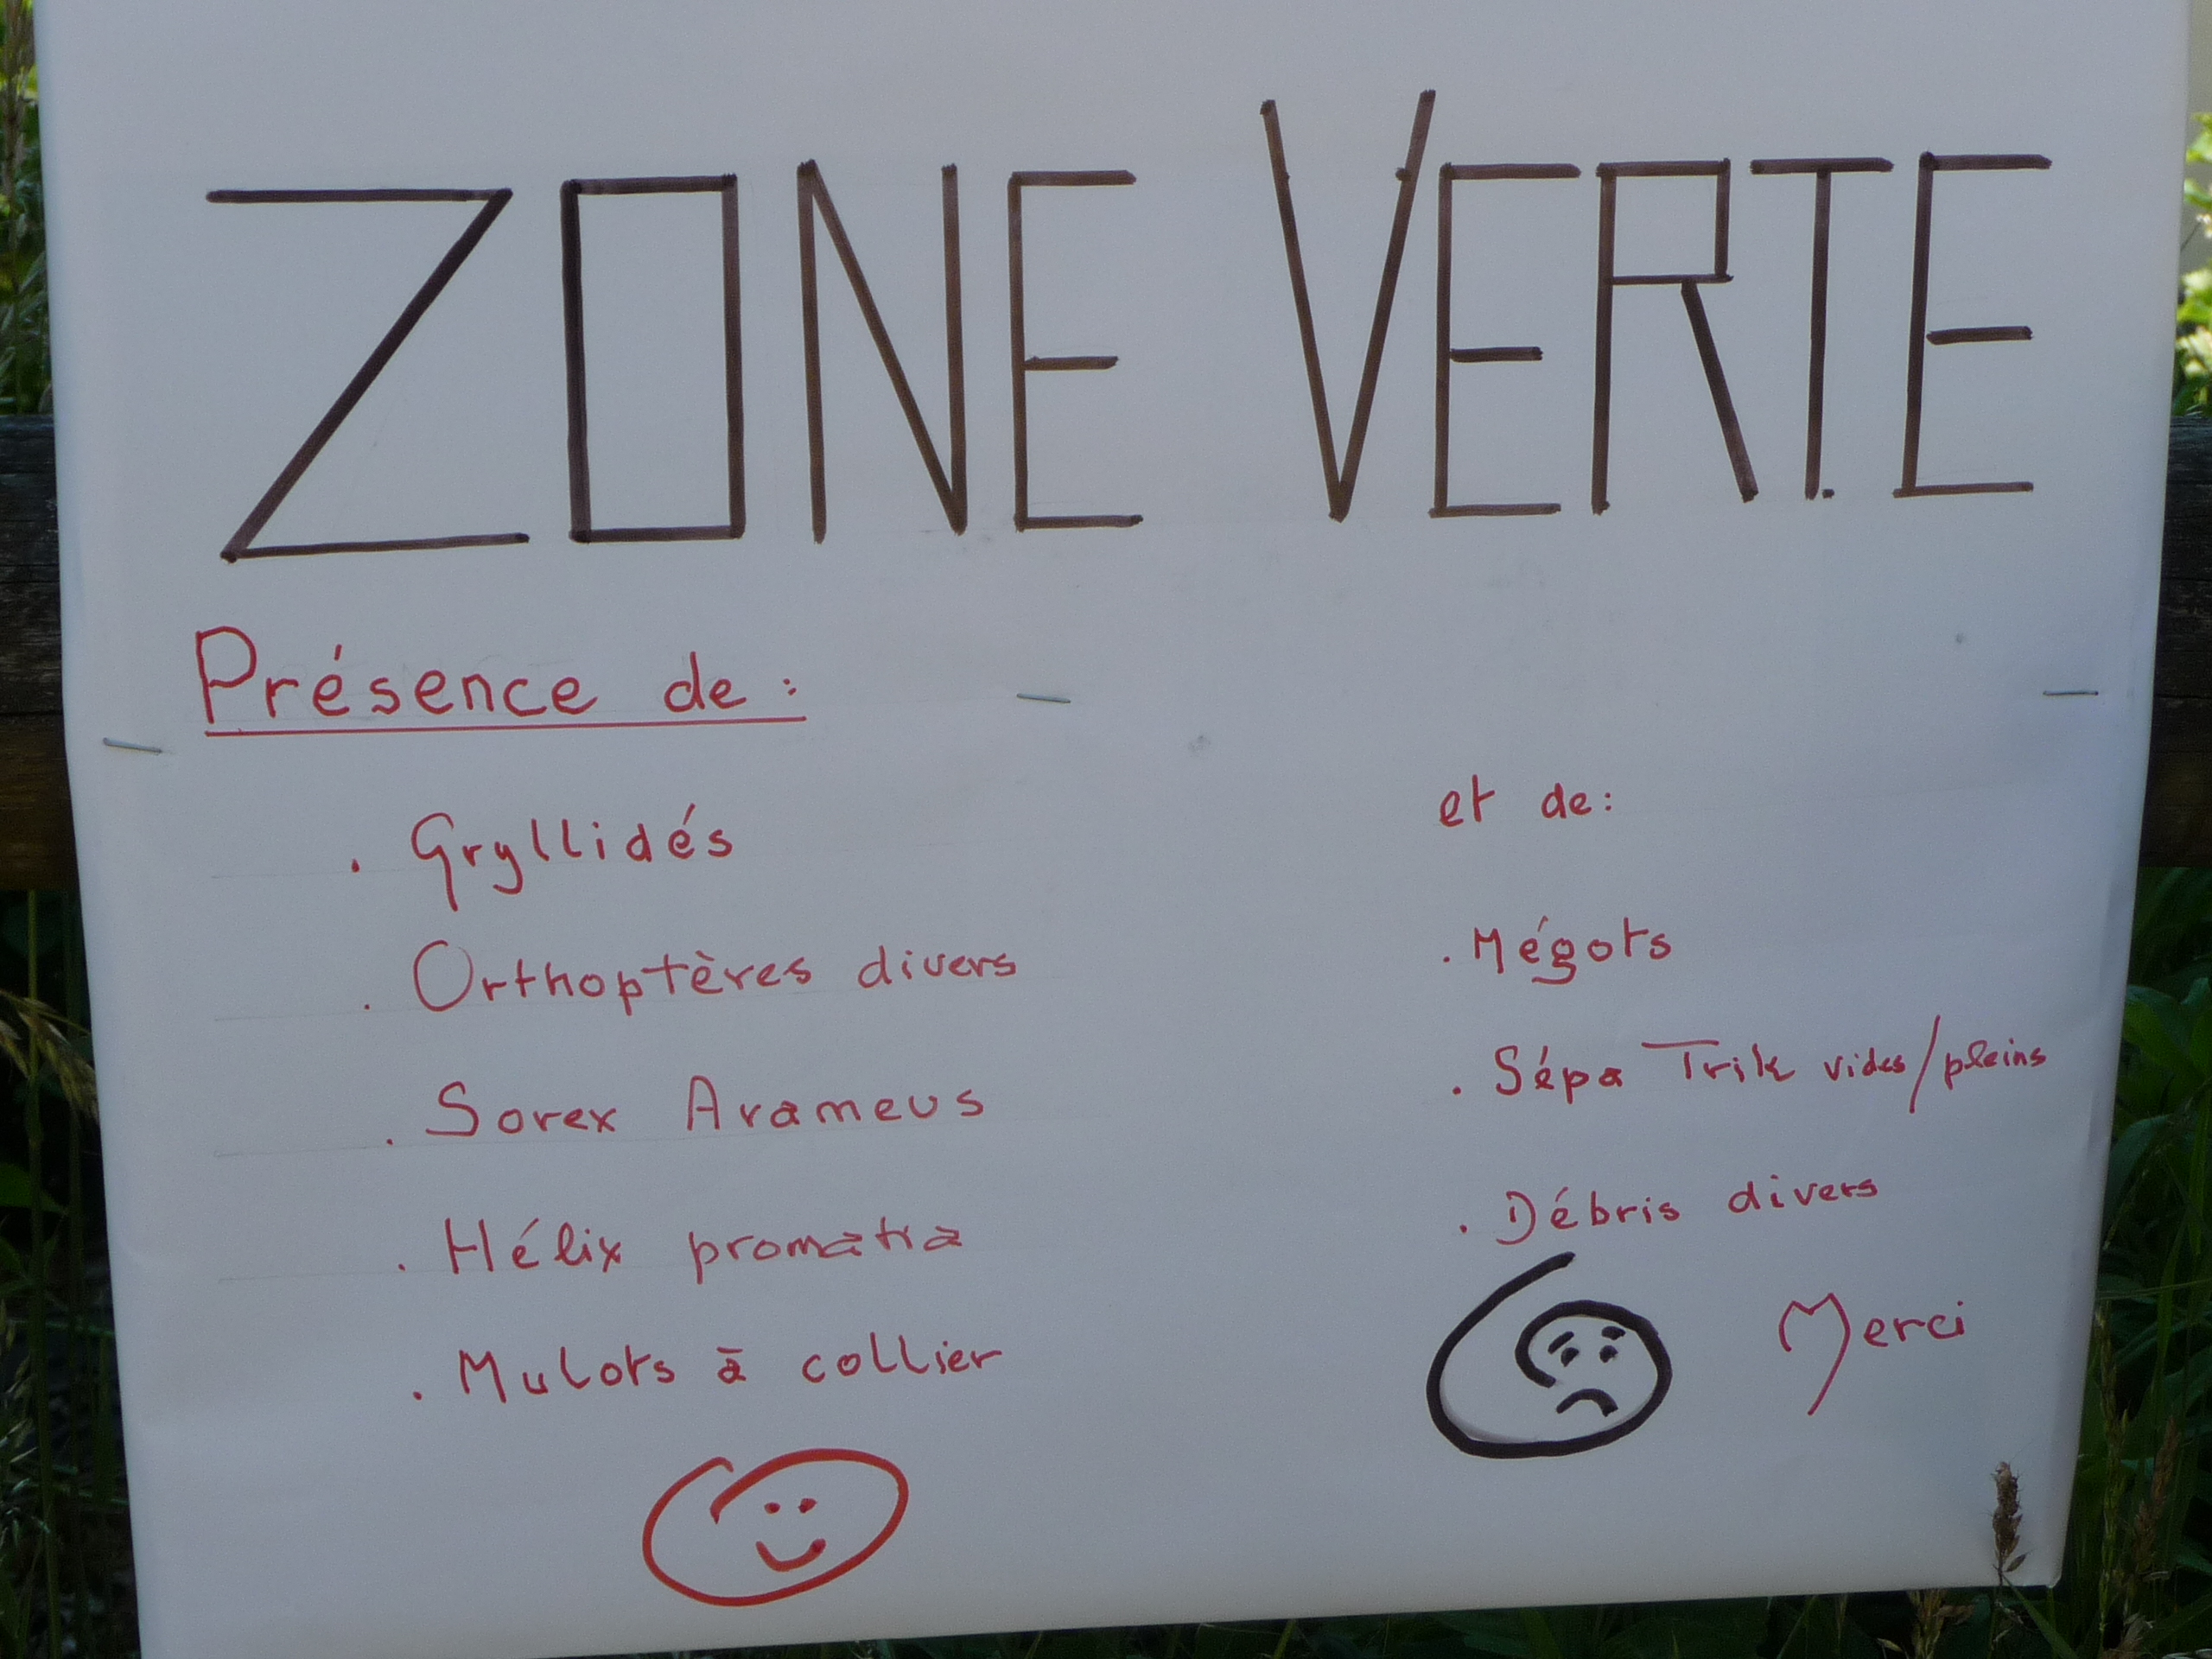 ZONE VERTE
Présence de :
. Gryllidés
. Orthoptères divers
. Sorex Arameus
. Hélix promatia
. Mulots à collier
et de :
. Mégots
. Sépa Trik vides/pleins
. Débris divers
Merci